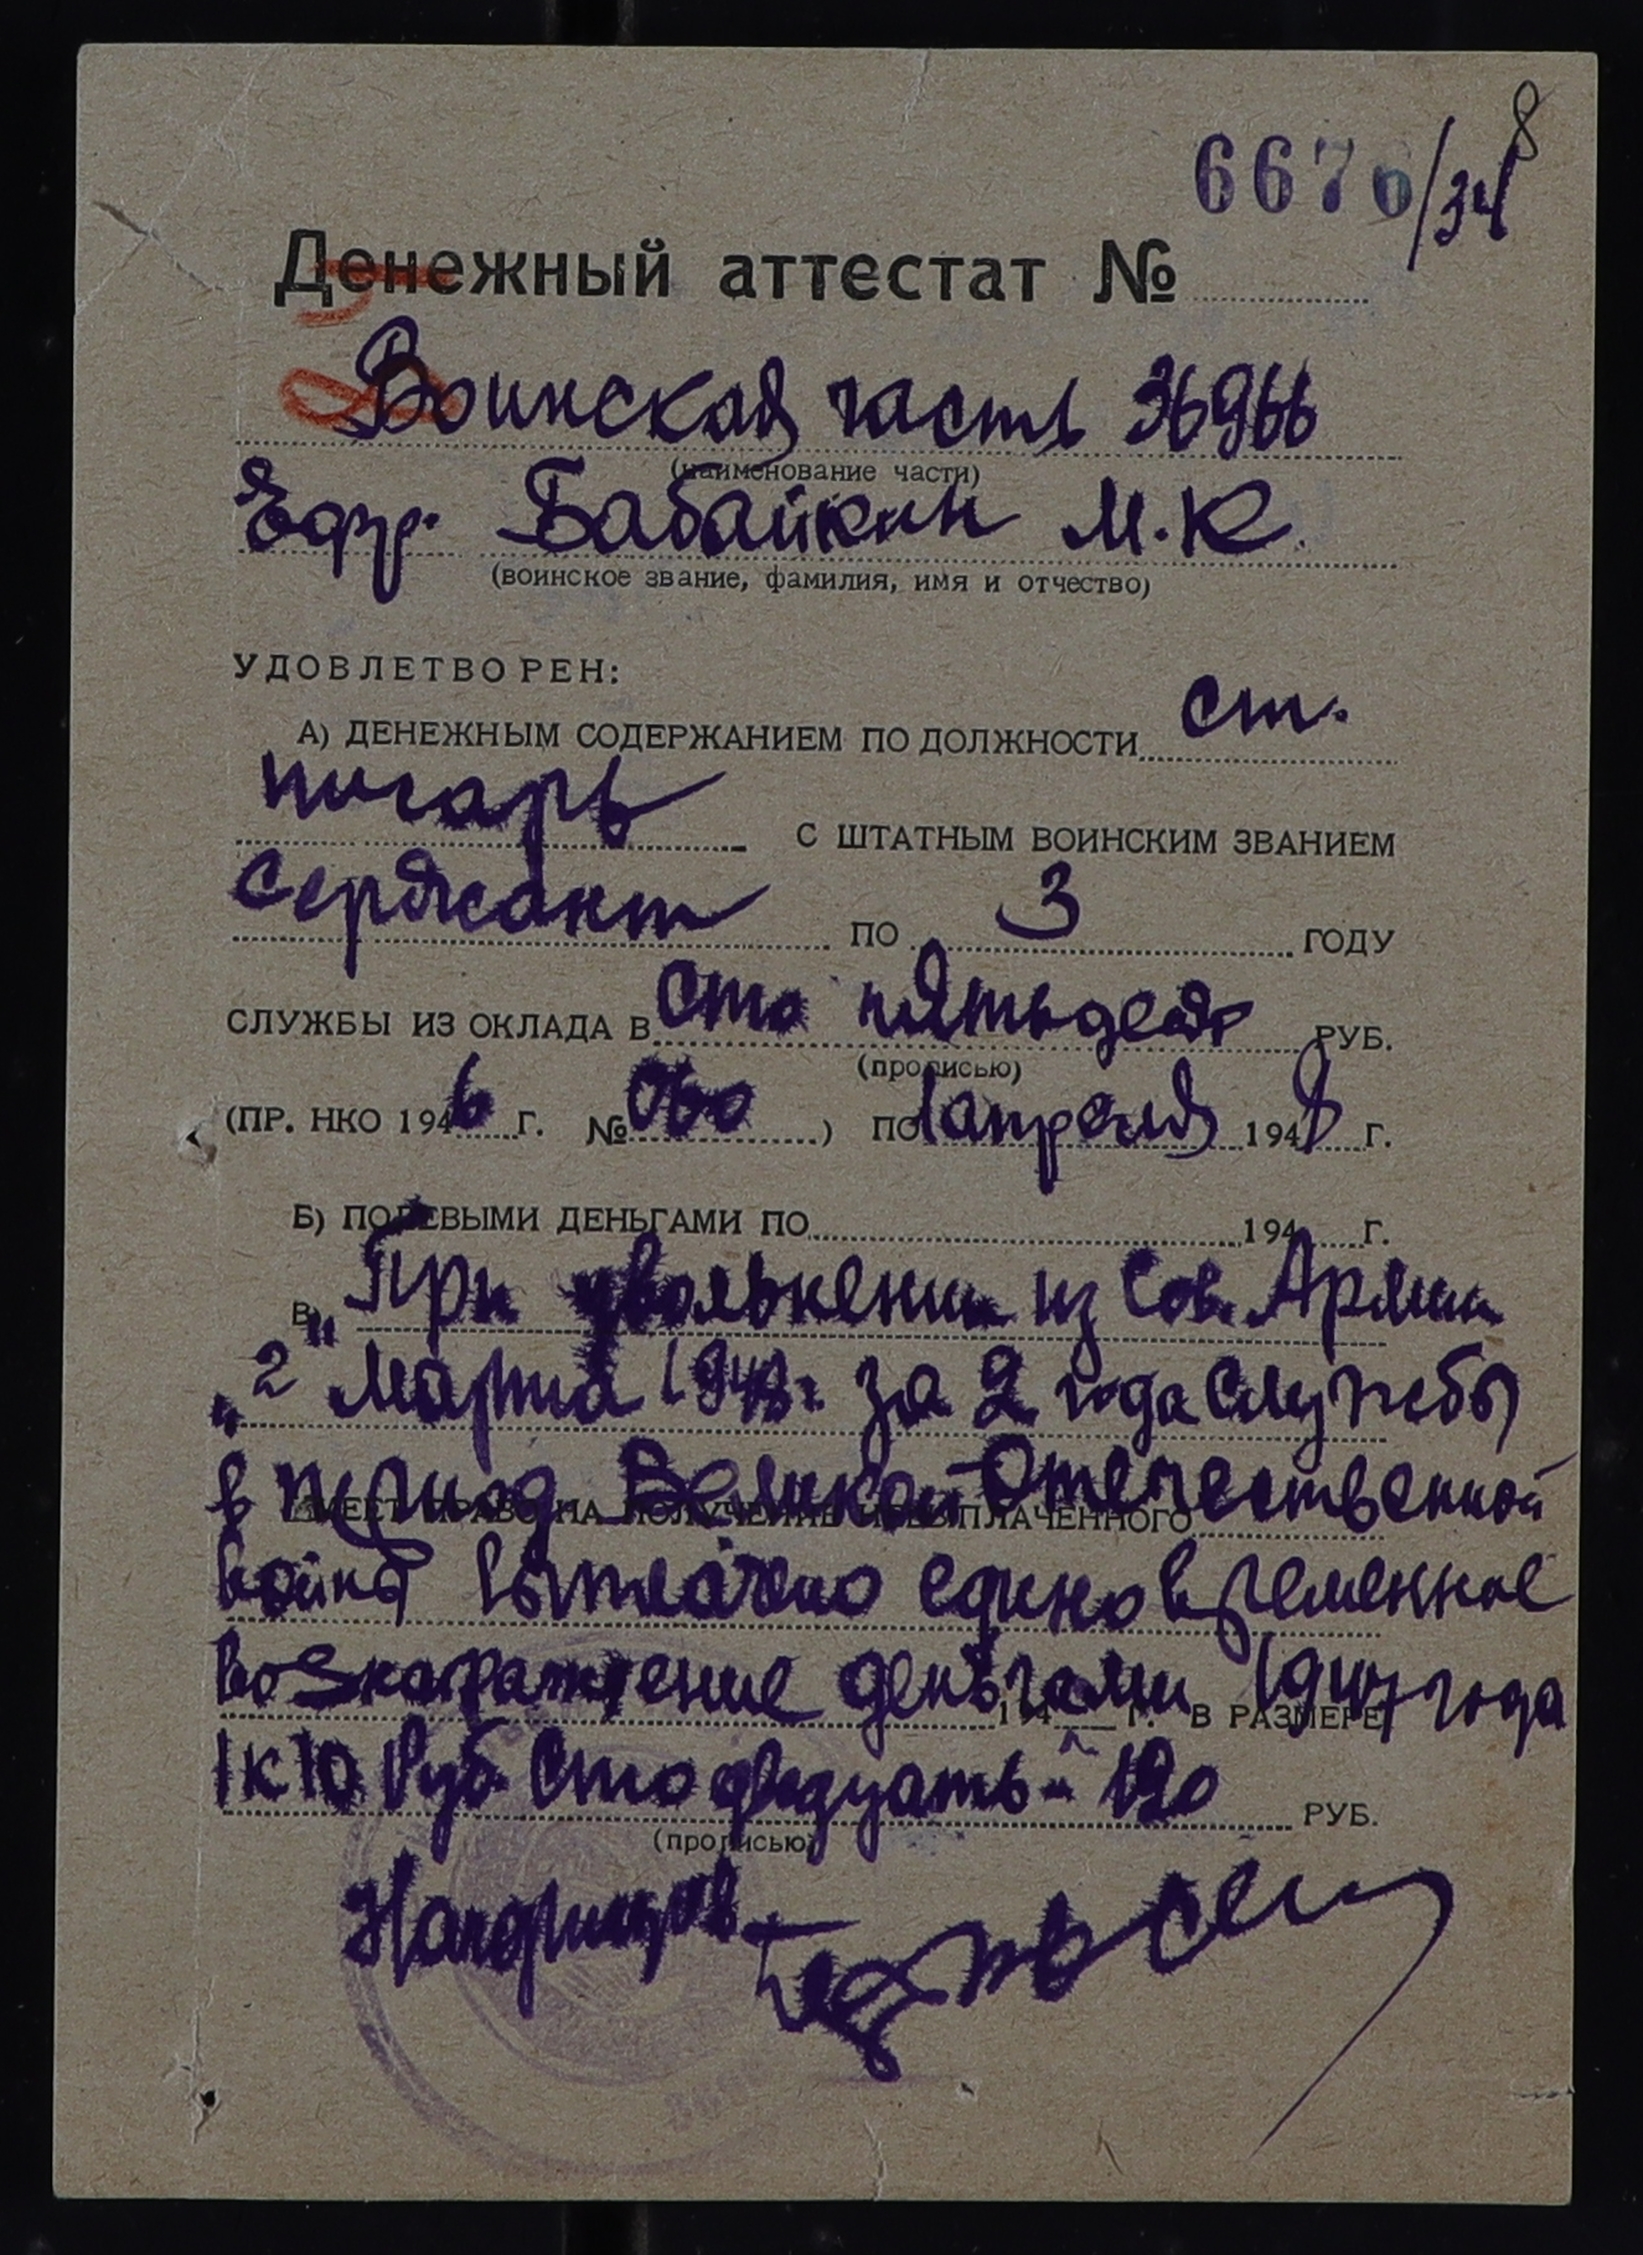 8
6676/34
Денежный аттестат №
Воинская часть 36966
(наименование части)
Ефр. Бабайкин М.К.
(воинское звание, фамилия, имя и отчество)
УДОВЛЕТВОРЕН:
А) ДЕНЕЖНЫМ СОДЕРЖАНИЕМ ПО ДОЛЖНОСТИ ст.
писарь С ШТАТНЫМ ВОИНСКИМ ЗВАНИЕМ
сержант ПО 3 ГОДУ
СЛУЖБЫ ИЗ ОКЛАДА В сто пятьдесят РУБ.
(прописью)
(ПР. НКО 1946 Г. № 060) ПО 1 апреля 1948 Г.
Б) ПОЛЕВЫМИ ДЕНЬГАМИ ПО 194 Г.
В) При увольнении из Сов. Армии
"2" Марта 1948 г. за 2 года службы
в период Великой Отечественной
ИМЕЕТ ПРАВО НА ПОЛУЧЕНИЕ НЕВЫПЛАЧЕННОГО
войны выплачено единовременное
вознаграждение деньгами 1947 года
194 Г. В РАЗМЕРЕ
1 к 10 Руб. Сто двадцать - 120 РУБ.
(прописью)